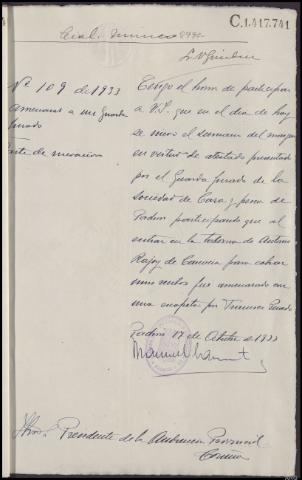 C.1.417.741
Nº 109 de 1933
Amenazas a un Guarda
Jurado
Parte de incoacion
Tengo el honor de participar
a V.I. que en el dia de hoy
se inicia el sumario del margen
en virtud de atestado presentado
por el Guarda Jurado de la
Sociedad de Caza y pesca de
Padron participando que al
entrar en la taberna de Antonio
Rajoy de para cobrar
unos fue amenazado con
una escopeta por
Padron 17 de Octubre de 1933
Manuel
Iltmo. Sr. Presidente de la Audiencia Provincial
Coruña